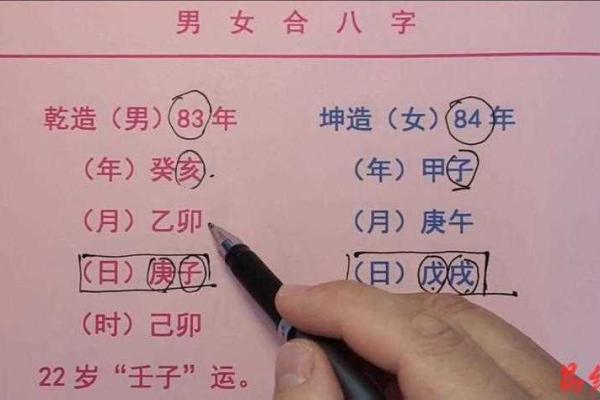 男女合八字
乾造（男）83年
（年）癸亥
（月）乙卯
（日）庚子
（时）己卯
22岁“壬子”运。
坤造（女）84年
（年）甲子
（月）庚午
（日）戊戌